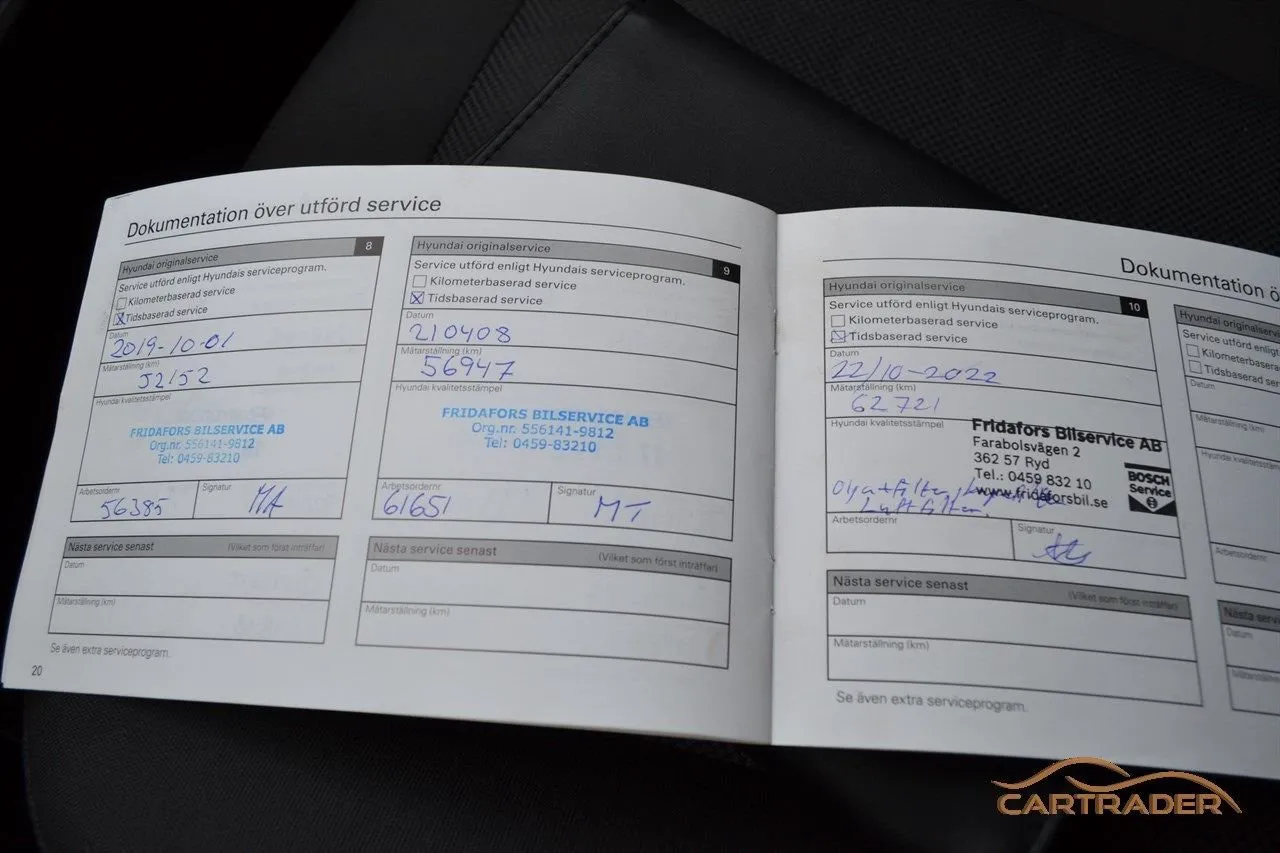 Dokumentation över utförd service
Hyundai originalservice 8
Service utförd enligt Hyundais serviceprogram.
Kilometerbaserad service
Tidsbaserad service
Datum
2019-10-01
Mätarställning (km)
52152
Hyundai kvalitetsstämpel
FRIDAFORS BILSERVICE AB
Org.nr. 556141-9812
Tel: 0459-83210
Arbetsordernr
56385
Signatur
MA
Nästa service senast (Vilket som först inträffar)
Datum
Mätarställning (km)
Se även extra serviceprogram.
20
Hyundai originalservice 9
Service utförd enligt Hyundais serviceprogram.
Kilometerbaserad service
Tidsbaserad service
Datum
210408
Mätarställning (km)
56947
Hyundai kvalitetsstämpel
FRIDAFORS BILSERVICE AB
Org.nr. 556141-9812
Tel: 0459-83210
Arbetsordernr
61651
Signatur
MT
Nästa service senast (Vilket som först inträffar)
Datum
Mätarställning (km)
Dokumentation ö
Hyundai originalservice 10
Service utförd enligt Hyundais serviceprogram.
Kilometerbaserad service
Tidsbaserad service
Datum
22/10-2022
Mätarställning (km)
62721
Hyundai kvalitetsstämpel
Fridafors Bilservice AB
Farabolsvägen 2
362 57 Ryd
Tel.: 0459 832 10
www.fridaforsbil.se
BOSCH
Service
Olja+Filter,
Luftfilter.
Arbetsordernr
Signatur
Nästa service senast (Vilket som först inträffar)
Datum
Mätarställning (km)
Se även extra serviceprogram.
Hyundai originalserv
Service utförd enligt
Kilometerbasera
Tidsbaserad ser
Datum
Mätarställning (km)
Hyundai kvalitetsstäm
Arbetsordernr
Nästa serv
Datum
Mätarställn
CARTRADER